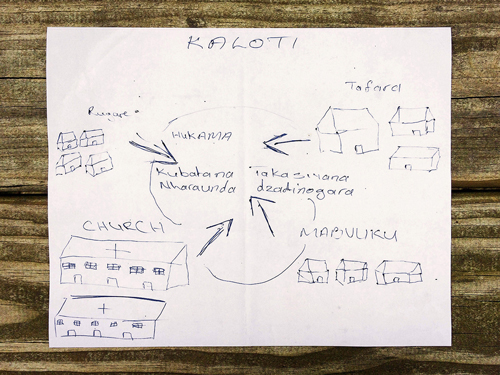 KALOTI
Tafara
HUKAMA
Kubatana
Nharaunda
Takasiyana
dzatinogara
CHURCH
MABVUKU